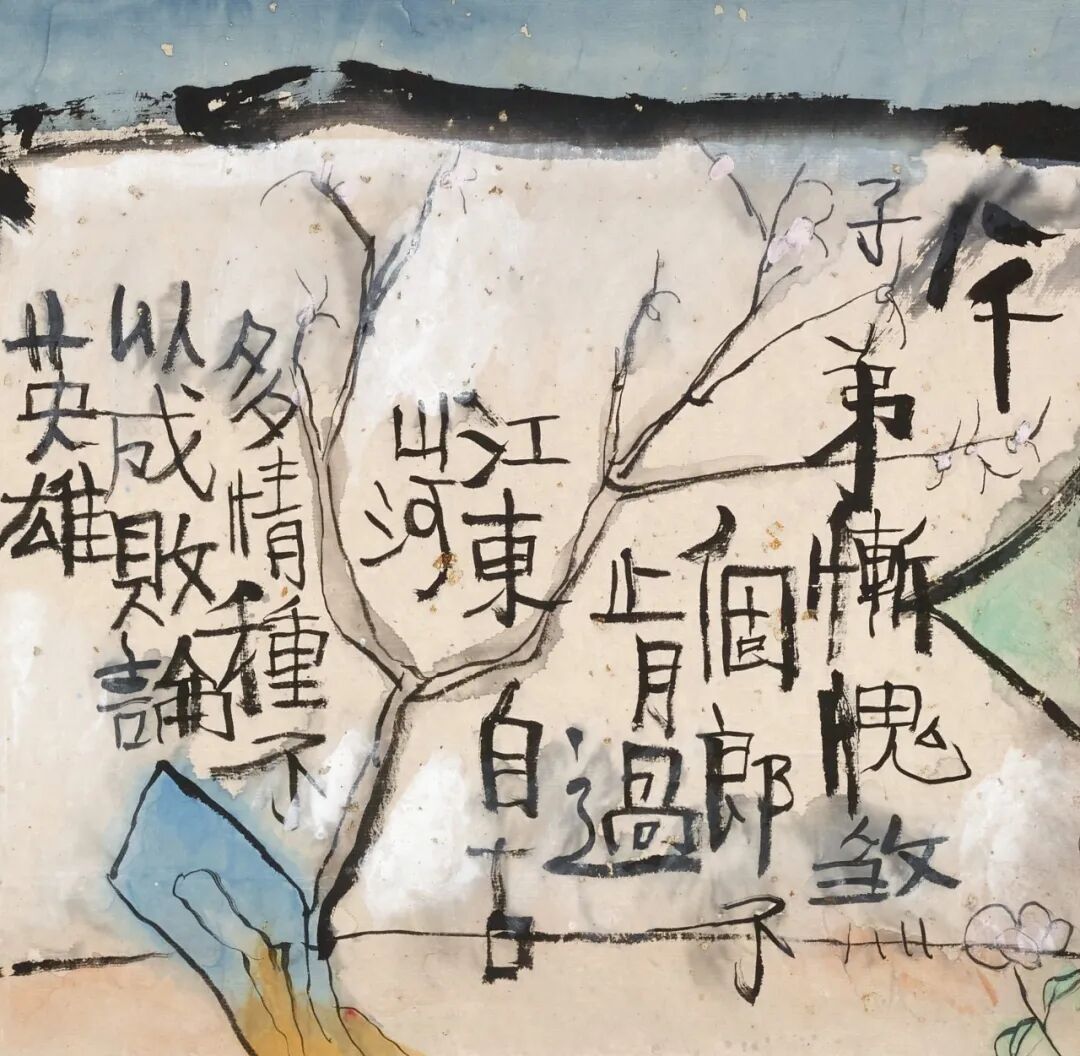 八千
子弟慚愧煞
個郎不
肯過
江東自古
山河
多情種不
以成敗論
英雄